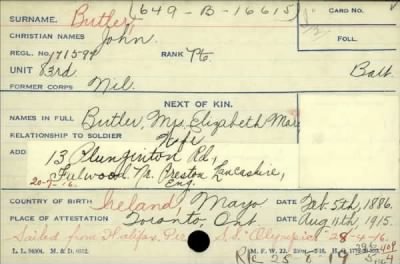 (649-B-16615)
SURNAME. Butler,
CARD NO.
CHRISTIAN NAMES John.
FOLL.
REGL. NO. 171597 RANK Pte.
UNIT 83rd Batt.
FORMER CORPS Nil.
NEXT OF KIN.
NAMES IN FULL Butler, Mrs. Elizabeth Mary
RELATIONSHIP TO SOLDIER Wife
ADD 13 Plunginton Rd,
Fulwood Nr. Preston, Lancashire,
20-7-16. Eng.
COUNTRY OF BIRTH Ireland Mayo DATE Feb. 5th, 1886.
PLACE OF ATTESTATION Toronto, Ont. DATE Aug. 11th, 1915.
Sailed from Halifax, Per S.S. "Olympic" 28-4-16.
L. L. 50304. M. & D. 6512. M. F. W. 22.
R/c 25-6-19